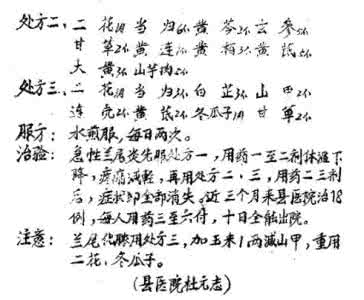 处方二、二花1两 当归6钱 黄芩3钱 玄参5钱
甘草2钱 黄连2钱 黄柏3钱 黄芪5钱
大黄3钱 山羊肉2钱
处方三、二花1两 当归3钱 白芷3钱 山甲2钱
连壳2钱 黄芪2钱 冬瓜子1两 甘草2钱
服方: 水煎服,每日两次。
治验: 急性兰尾炎先服处方一,用药一至二剂体温下
降,疼痛减轻,再用处方二、三,用药二三剂
后,症状即全部消失。近三个月来县医院治18
例,每人用药三至六付,十日全能出院。
注意: 兰尾化脓用处方三,加玉米1两减山甲,重用
二花、冬瓜子。
(县医院杜元志)